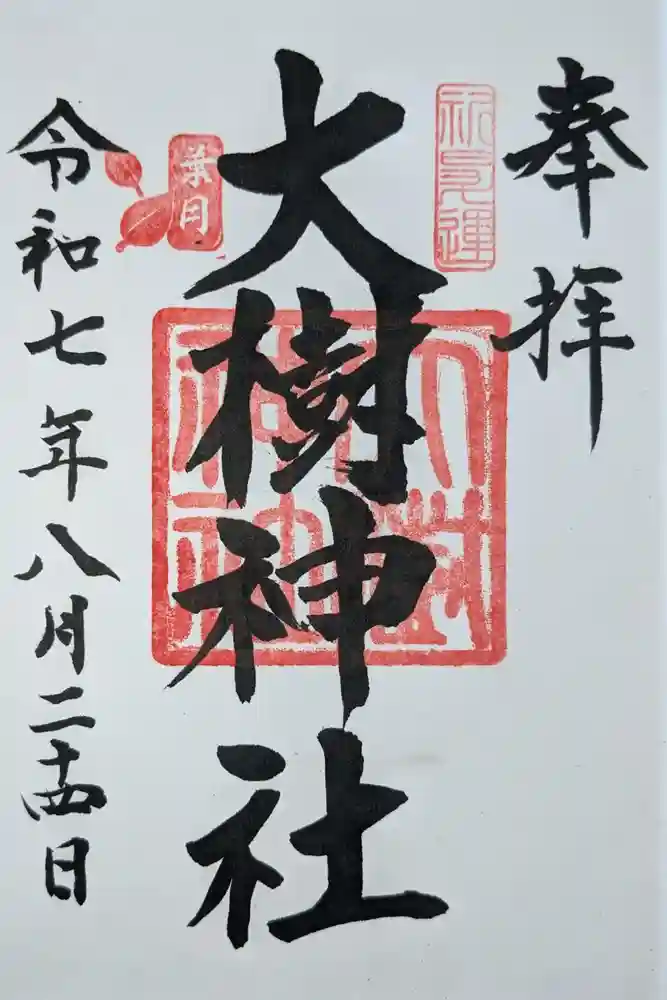 奉拝
大樹神社
葉月
令和七年八月二十四日
大樹神社